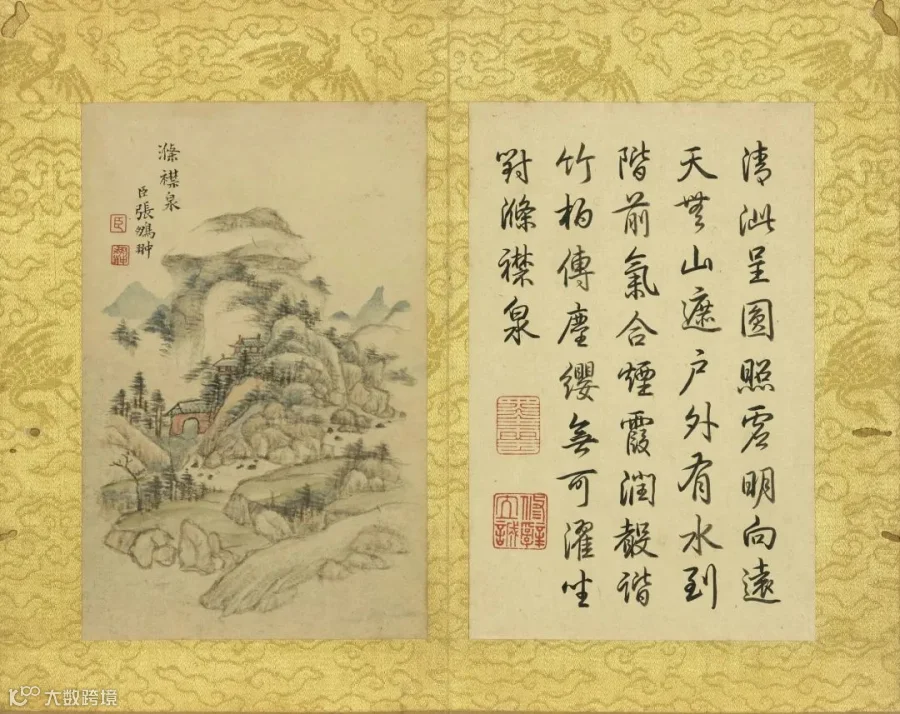 清泚呈圓照虛明向遠
天無山遮戶外有水到
階前氣合煙霞潤聲諧
竹柏傳塵纓無可濯坐
對滌襟泉
修辭立誠
滌襟泉
臣張鵬翀
臣
大数跨境